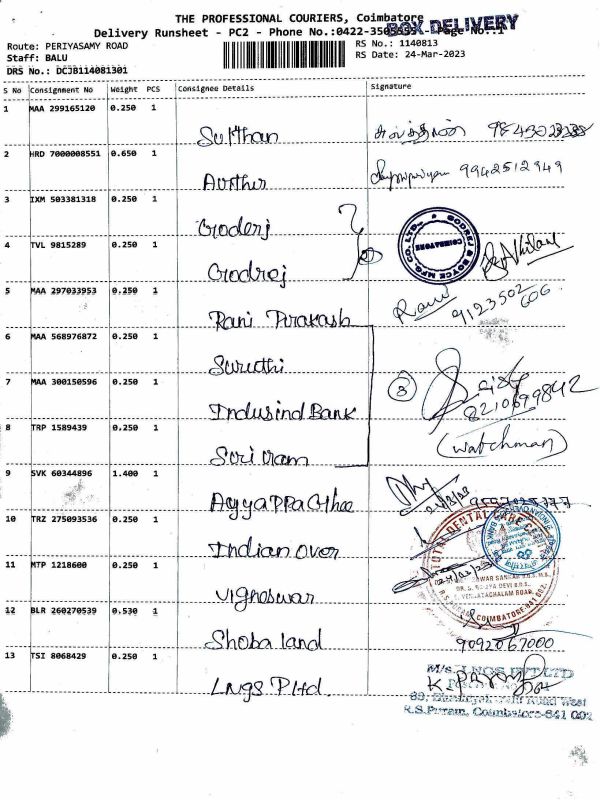 THE PROFESSIONAL COURIERS, Coimbatore
BOX DELIVERY
Delivery Runsheet - PC2 - Phone No.:0422- Page No.:1
Route: PERIYASAMY ROAD
RS No.: 1140813
Staff: BALU
RS Date: 24-Mar-2023
DRS No.: DCJB114081301
S No Consignment No Weight PCS Consignee Details Signature
1 MAA 299165120 0.250 1
Sulthan
2 HRD 7000008551 0.650 1
Aurther 9942512949
3 IXM 503381318 0.250 1
Godrej
GODREJ & BOYCE MFG. CO. LTD.,
COIMBATORE
4 TVL 9815289 0.250 1
Godrej
5 MAA 297033953 0.250 1
Rani Prakash
Rani
9123502
606
6 MAA 568976872 0.250 1
Suruthi
7 MAA 300150596 0.250 1
Indusind Bank
3
8210699842
8 TRP 1589439 0.250 1
Sri Ram
(watchman)
9 SVK 60344896 1.400 1
Ayyappa
10 TRZ 275093536 0.250 1
Indian over
TOTAL DENTAL CARE
11 MTP 1218600 0.250 1
Vigneswar
COIMBATORE-641 002
12 BLR 260270539 0.530 1
Shoba land
9092067000
13 TSI 8068429 0.250 1
Lngs P Ltd.
M/s. LNGS PVT LTD
R.S.Puram, Coimbatore-641 002